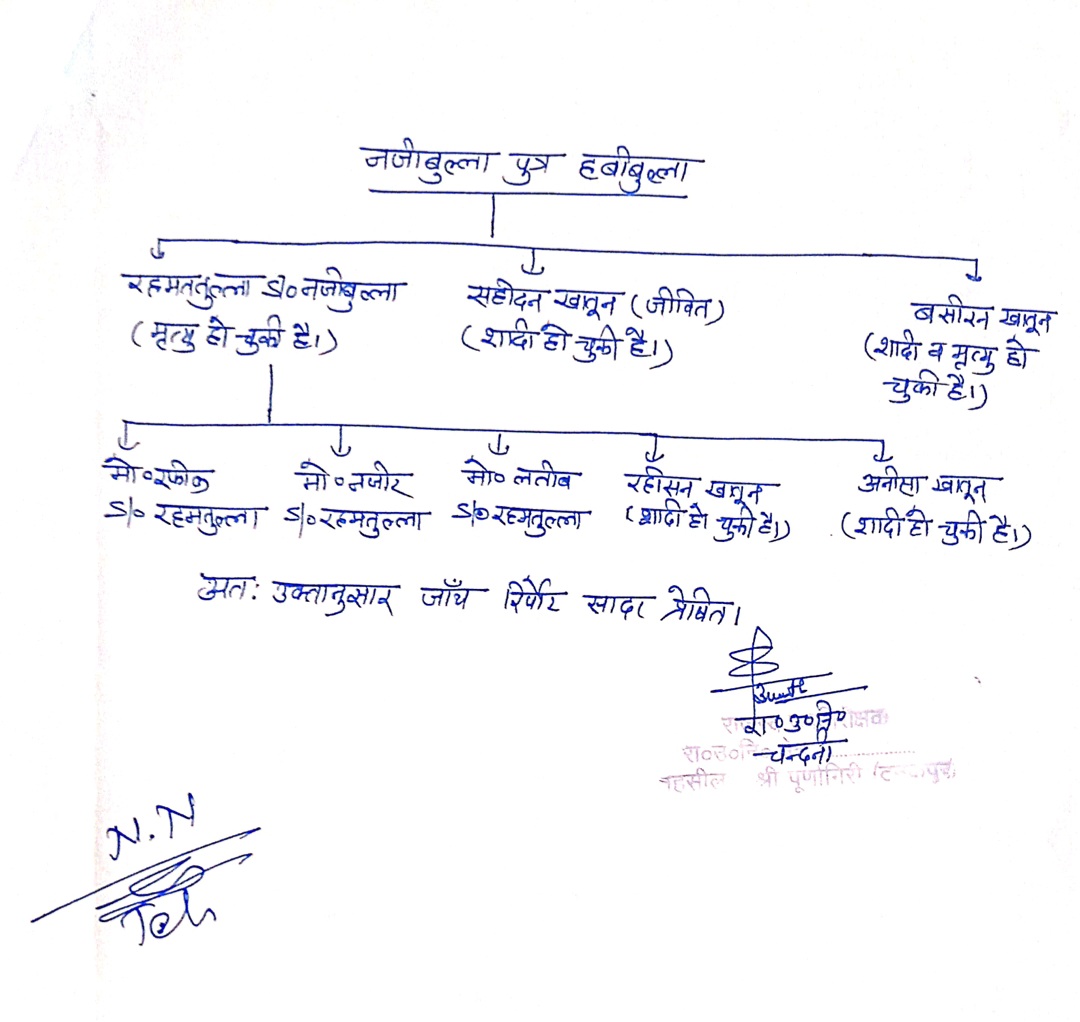 नजीबुल्ला पुत्र हबीबुल्ला
रहमततुल्ला S/० नजीबुल्ला
(मृत्यु हो चुकी है।)
सहीदन खातून (जीवित)
(शादी हो चुकी है।)
बसीरन खातून
(शादी व मृत्यु हो
चुकी है।)
मो० रफीक
S/० रहमतुल्ला
मो० नजीर
S/० रहमतुल्ला
मो० लतीब
S/० रहमतुल्ला
रहीसन खातून
(शादी हो चुकी है।)
अनीसा खातून
(शादी हो चुकी है।)
अतः उक्तानुसार जाँच रिर्पोट सादर प्रेषित।
रा० उ० नि०
चन्दनी
रा०उ०नि०
तहसील श्री पूर्णागिरी
N.N
Teh